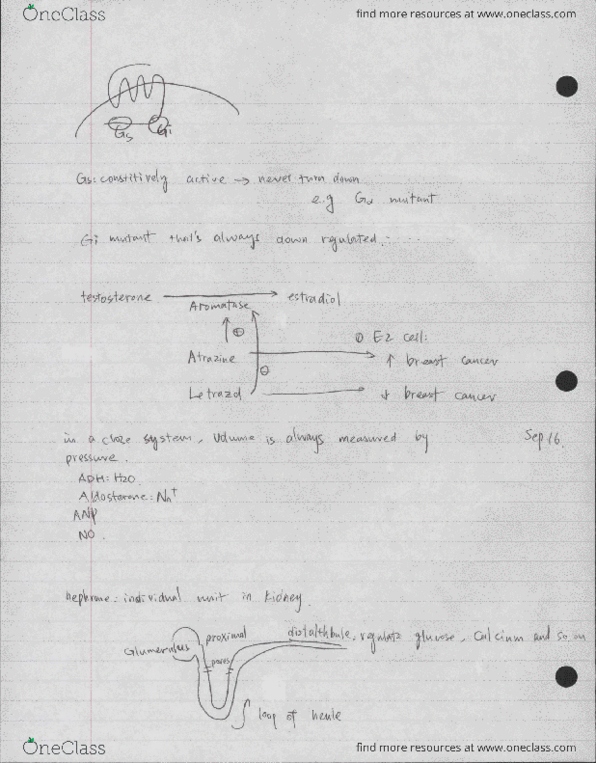 OneClass
find more resources at www.oneclass.com
Gs
Gi
Gs: constitively active → never turn down
e.g Gs mutant
Gi mutant that's always down rgulated.
testosterone → estradiol
Aromatase
↑ ⊕
① E2 cell:
Atrazine → ↑ breast cancer
⊖
Letrazol → ↓ breast cancer
in a close system, volume is always measured by
Sep 16.
pressure.
ADH: H2O
Aldosterone: Na+
ANP
NO.
nephrone: individual unit in kidney.
Glumerulus
proximal
distal tubule, rgulate glucose, calcium and so on
pores
loop of henle
OneClass
find more resources at www.oneclass.com